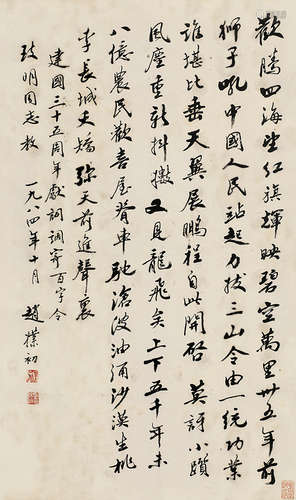 歡騰四海望紅旗輝映碧空萬里卅五年前
獅子吼中國人民站起力拔三山令由一統功業
誰堪比垂天翼展鵬程自此開啓莫訝小躓
風塵重新抖擻又見龍飛矣上下五千年未
八億農民歡喜屋脊車馳滄波油涌沙漠生桃
李長城夭矯弥天前進聲裏
建國三十五周年獻詞調寄百字令
明同志教
一九八四年十月 趙樸初